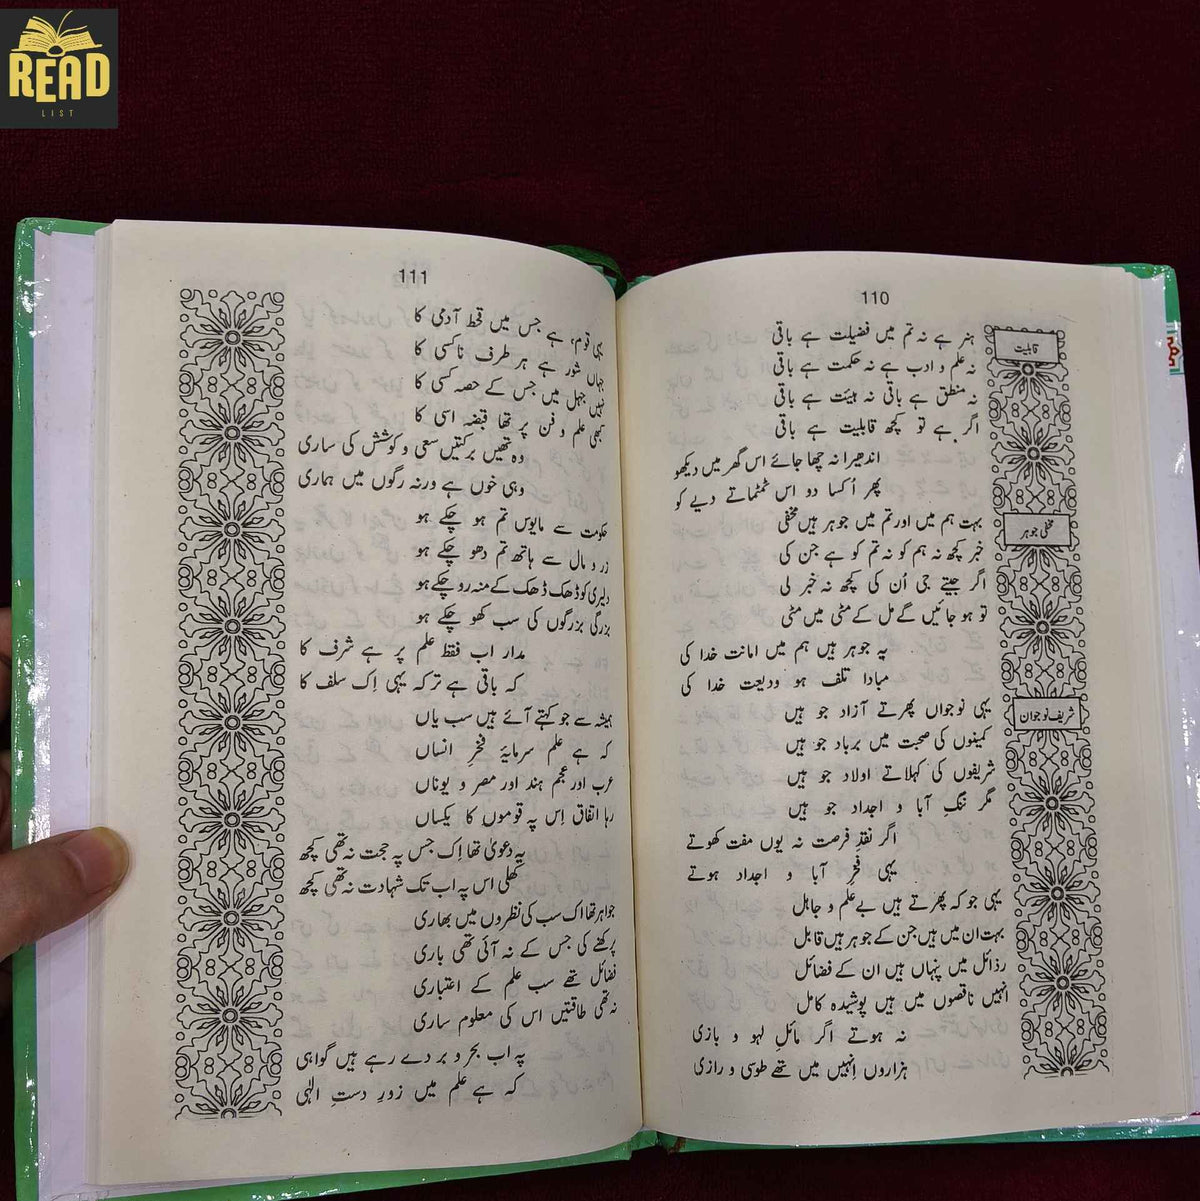 READ
LIST
110
قابلیت
ہنر ہے نہ تم میں فضیلت ہے باقی
نہ علم و ادب ہے نہ حکمت ہے باقی
نہ منطق ہے باقی نہ ہیئت ہے باقی
اگر ہے تو کچھ قابلیت ہے باقی
اندھیرا نہ چھا جائے اس گھر میں دیکھو
پھر اُکسا دو اس ٹمٹماتے دیے کو
مخفی جوہر
بہت ہم میں اور تم میں جوہر ہیں مخفی
خبر کچھ نہ ہم کو نہ تم کو ہے جن کی
اگر جیتے جی اُن کی کچھ نہ خبر لی
تو ہو جائیں گے مل کے مٹی میں مٹی
یہ جوہر ہیں ہم میں امانت خدا کی
مبادا تلف ہو ودیعت خدا کی
شریف نوجوان
یہی نوجواں پھرتے آزاد جو ہیں
کمینوں کی صحبت میں برباد جو ہیں
شریفوں کی کہلاتے اولاد جو ہیں
مگر ننگِ آبا و اجداد جو ہیں
اگر نقدِ فرصت نہ یوں مفت کھوتے
یہی فخرِ آبا و اجداد ہوتے
یہی جو کہ پھرتے ہیں بے علم و جاہل
بہت ان میں ہیں جن کے جوہر ہیں قابل
رذائل میں پنہاں ہیں ان کے فضائل
انہیں ناقصوں میں ہیں پوشیدہ کامل
نہ ہوتے اگر مائلِ لہو و بازی
ہزاروں اِنہیں میں تھے طوسی و رازی
111
یہی قوم، ہے جس میں قحط آدمی کا
جہاں شور ہے ہر طرف ناکسی کا
نہیں جہل میں جس کے حصہ کسی کا
کبھی علم و فن پر تھا قبضہ اسی کا
وہ تھیں برکتیں سعی و کوشش کی ساری
وہی خوں ہے ورنہ رگوں میں ہماری
حکومت سے مایوس تم ہو چکے ہو
زر و مال سے ہاتھ تم دھو چکے ہو
دلیری کو ڈھک ڈھک کے منہ رو چکے ہو
بزرگی بزرگوں کی سب کھو چکے ہو
مدار اب فقط علم پر ہے شرف کا
کہ باقی ہے ترکہ یہی اِک سلف کا
ہمیشہ سے جو کہتے آئے ہیں سب یاں
کہ ہے علم سرمایۂ فخرِ انساں
عرب اور عجم ہند اور مصر و یوناں
رہا اتفاق اِس پہ قوموں کا یکساں
یہ دعویٰ تھا اِک جس پہ حجت نہ تھی کچھ
کھلی اس پہ اب تک شہادت نہ تھی کچھ
جواہر تھا اک سب کی نظروں میں بھاری
پرکھنے کی جس کے نہ آئی تھی باری
فضائل تھے سب علم کے اعتباری
نہ تھی طاقتیں اس کی معلوم ساری
پہ اب بحر و بر دے رہے ہیں گواہی
کہ ہے علم میں زورِ دستِ الٰہی